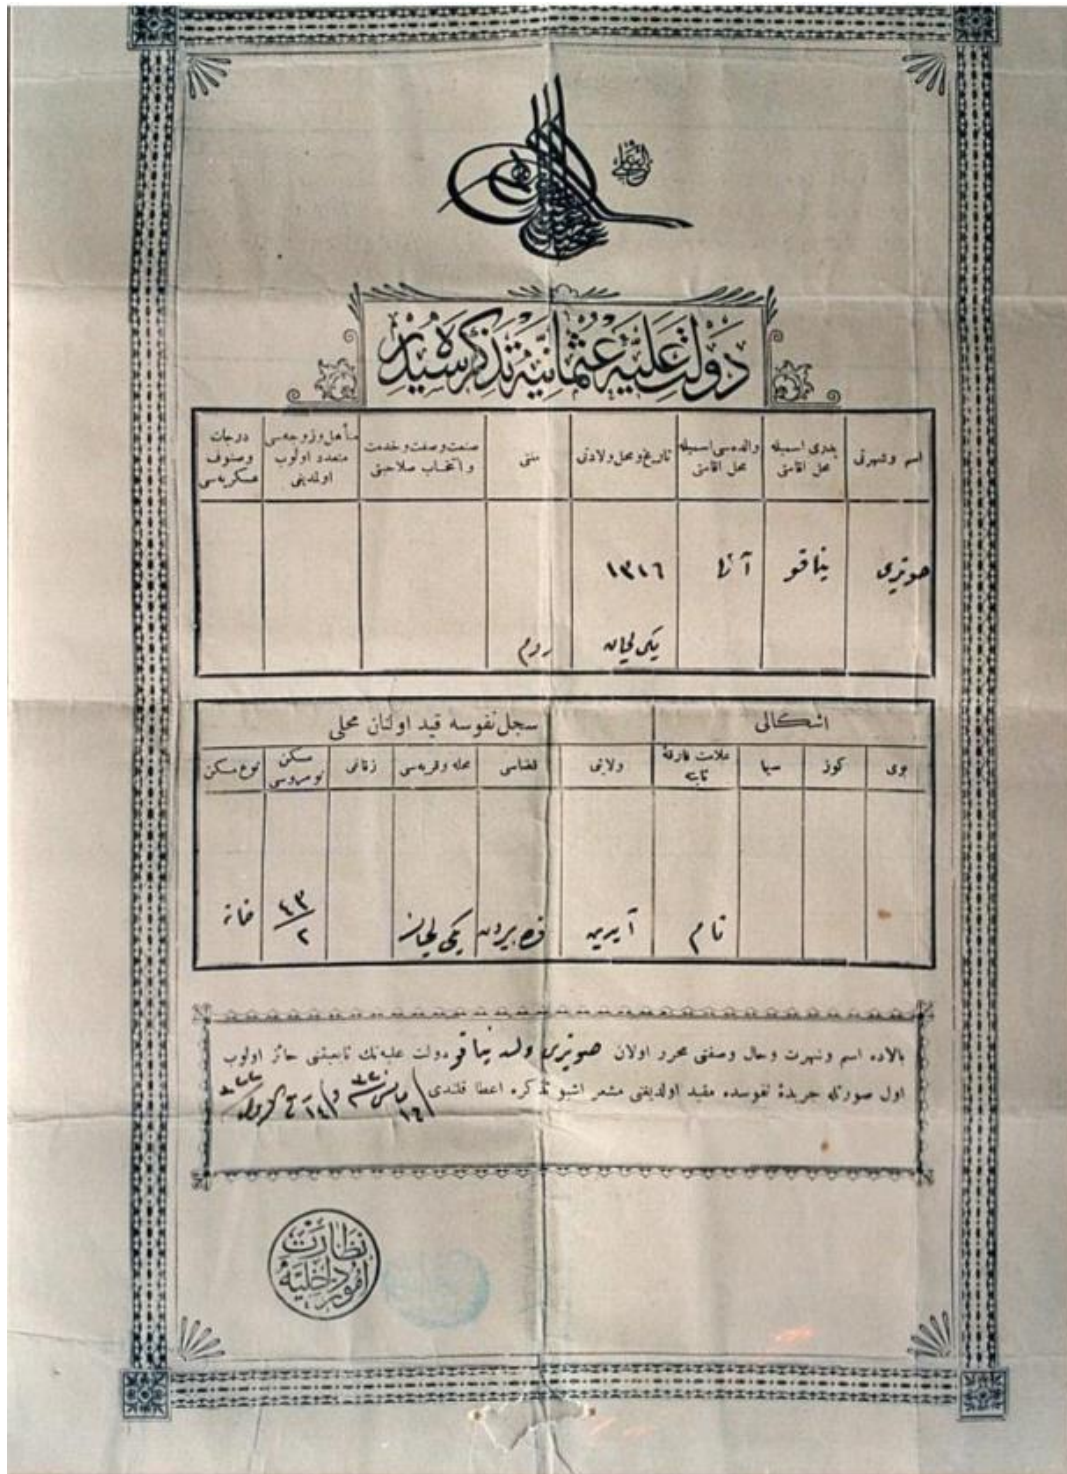 دولت علیهٔ عثمانیه تذکره سیدر
اسم وشهرتی
پدری اسمیله محل اقامتی
والده سی اسمیله محل اقامتی
تاریخ ومحل ولادتی
ملتی
صنعت وصفت وخدمت وانتخاب صلاحیتی
متأهل وزوجه سی متعدد اولوب اولمدیغی
درجات وصنوف عسکریه سی
صوتری
آنا
١٣١٦
یکی لیمان
روم
اشکالی
سجل نفوسه قید اولنان محلی
بوی
کوز
سیما
علامت فارقهٔ ثابته
ولایتی
قضاسی
محله وقریه سی
زقاقی
مسکن نومروسی
نوع مسکن
تام
آیدین
قره بورون
یکی لیمان
٤٣/٢
خانه
بالاده اسم وشهرت وحال وصفتی محرر اولان صوتری ولد دولت علیه نك تابعیتنی حائز اولوب
اول صورتله جریدهٔ نفوسده مقید اولدیغنی مشعر اشبو تذکره اعطا قلندی
نظارت امور داخلیه